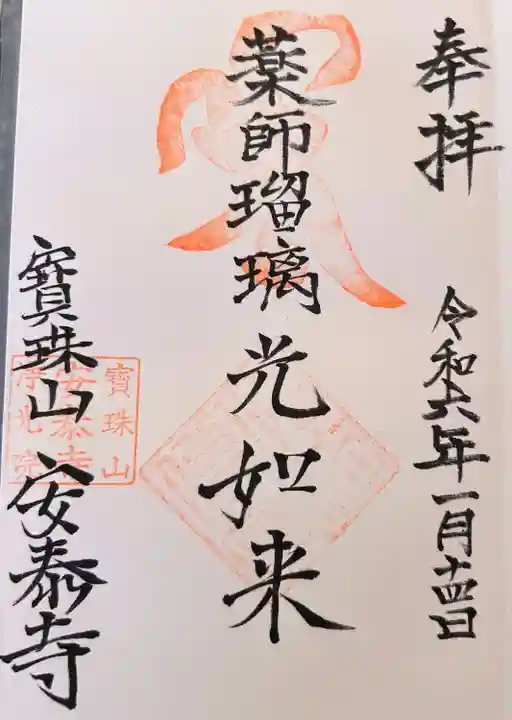 奉拝
令和六年一月十四日
薬師瑠璃光如来
寶珠山安泰寺
寶珠山
安泰寺